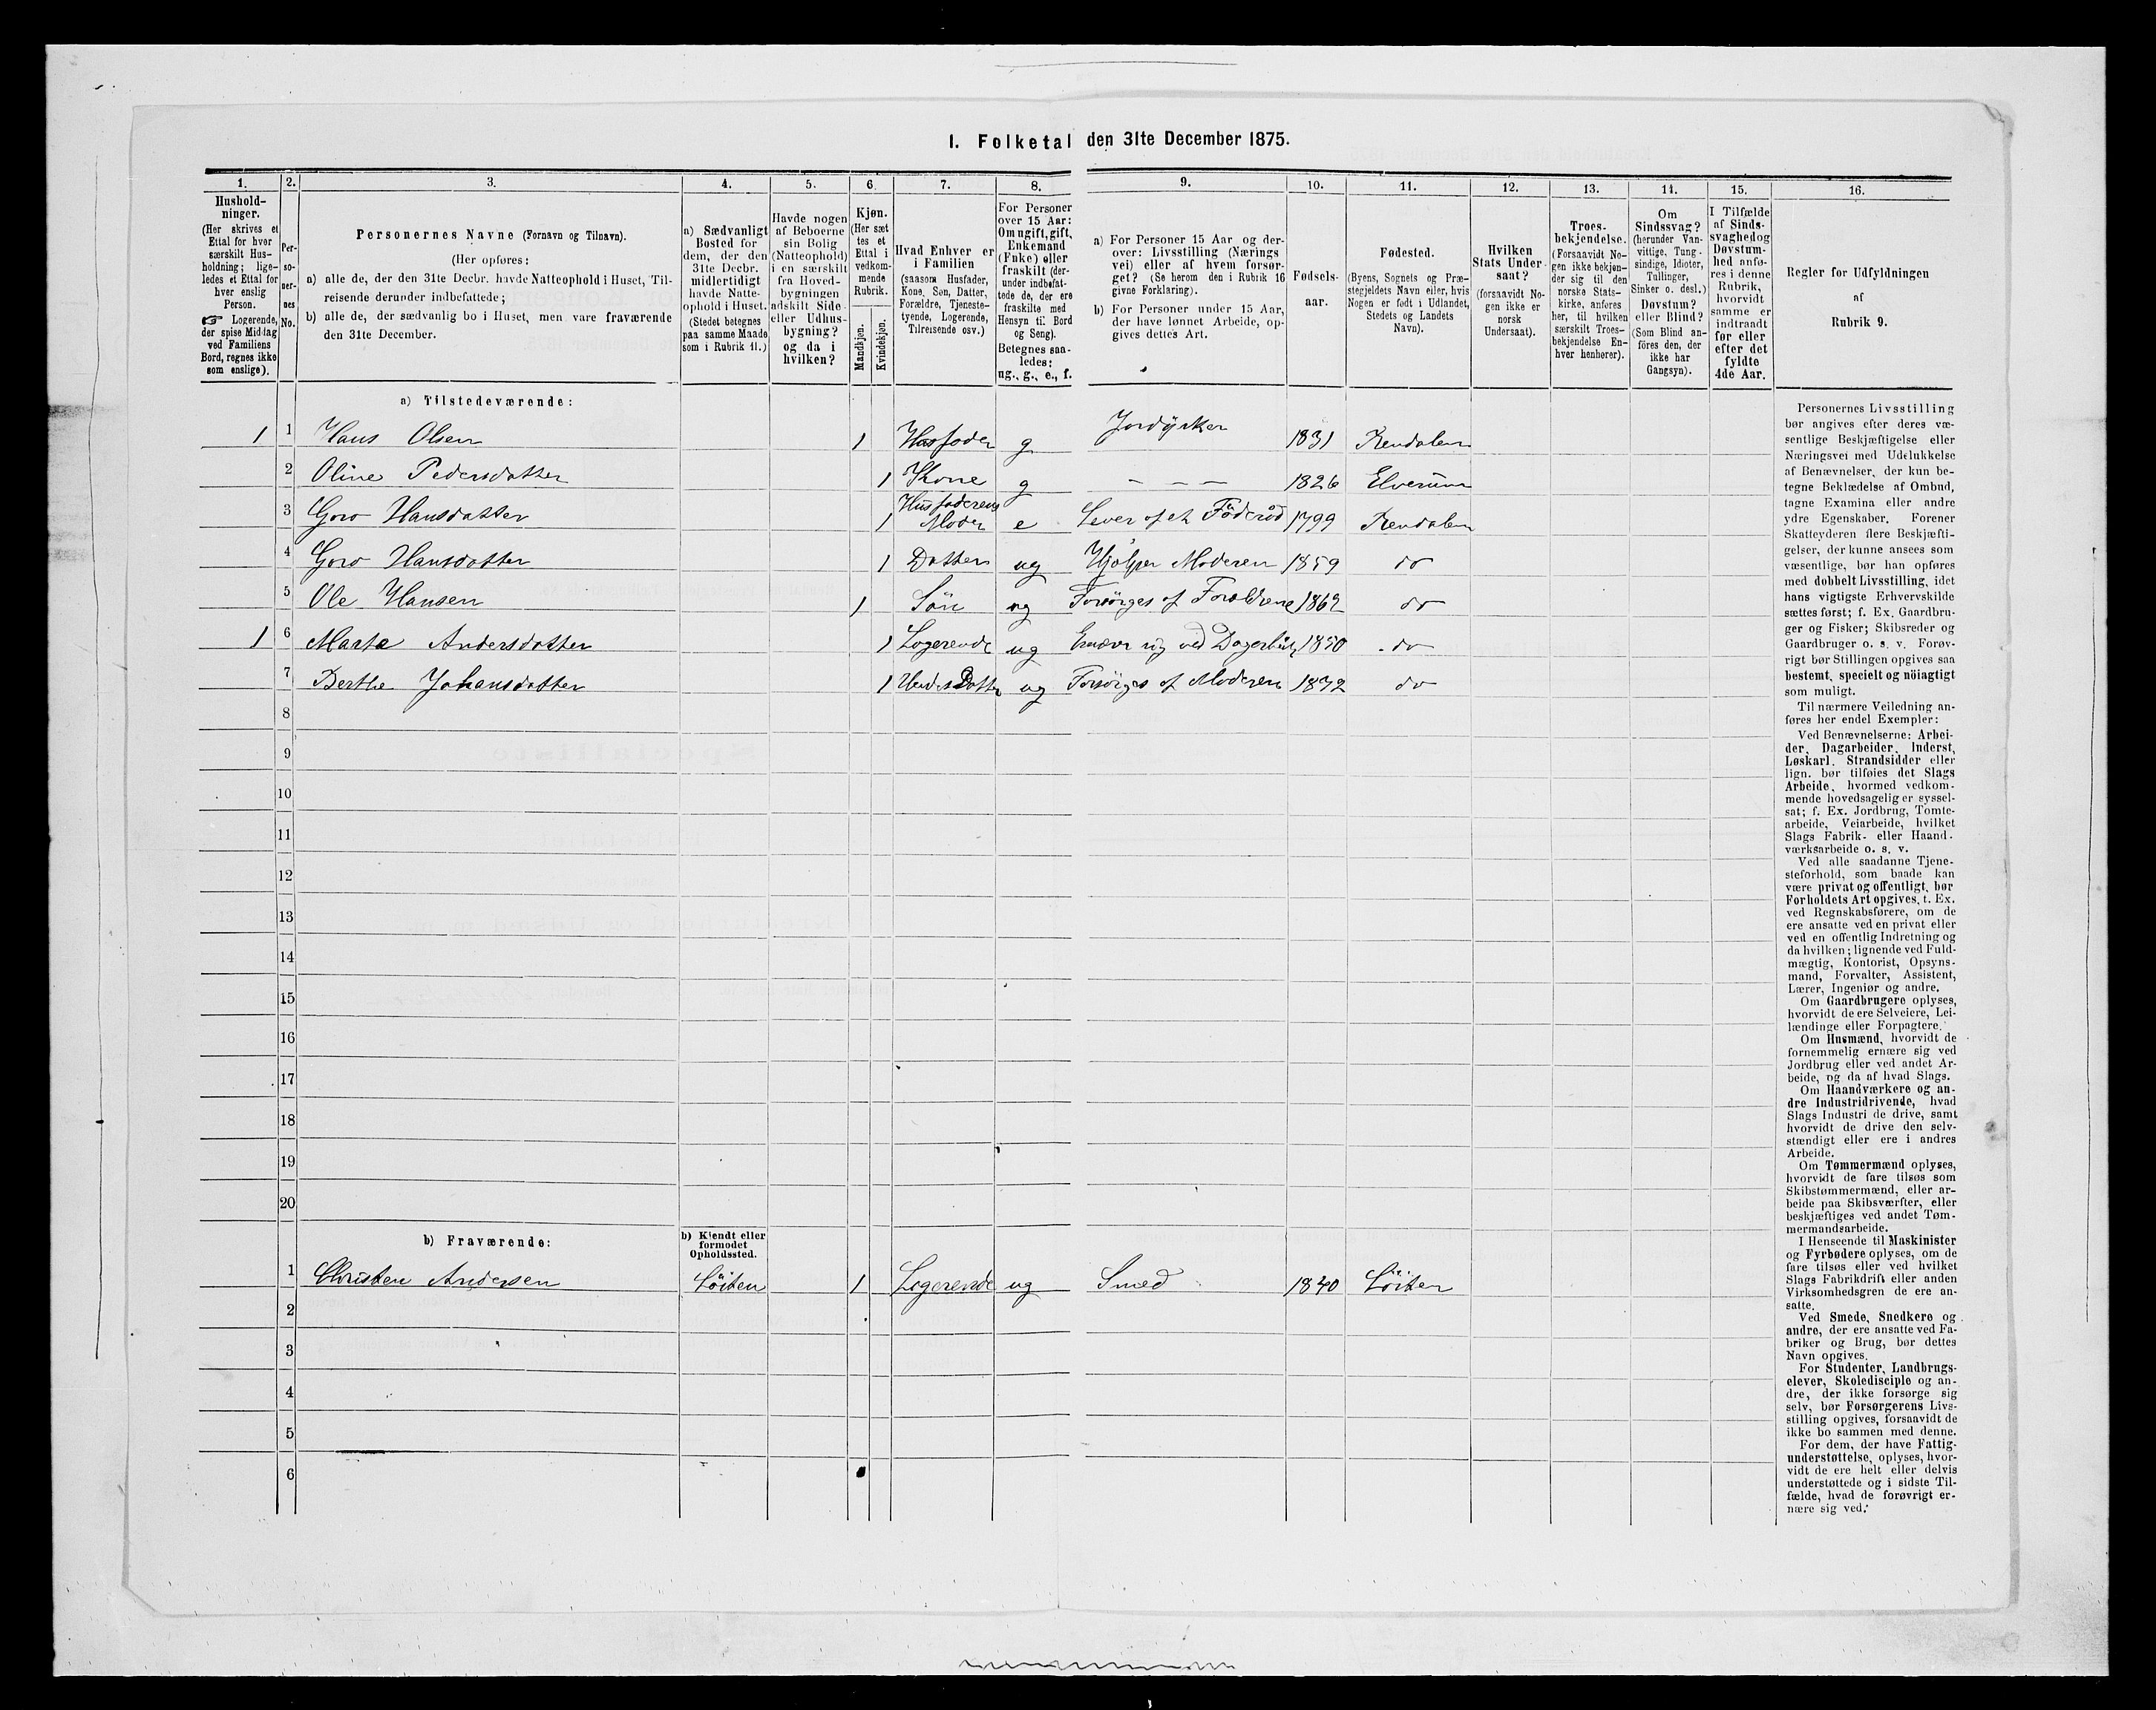 I. Folketal den 31te December 1875.
1. 2. 3. 4. 5. 6. 7. 8. 9. 10. 11. 12. 13. 14. 15. 16.
Hushold-
ninger.
(Her skrives et
Ettal for hver
særskilt Hus-
holdning; lige-
ledes et Ettal for
hver enslig
Person.
☞ Logerende,
der spise Middag
ved Familiens
Bord, regnes ikke
som enslige).
Per-
so-
ner-
nes
No.
Personernes Navne (Fornavn og Tilnavn).
(Her opføres:
a) alle de, der den 31te Decbr. havde Natteophold i Huset, Til-
reisende derunder indbefattede;
b) alle de, der sædvanlig bo i Huset, men vare fraværende
den 31te December.
a) Sædvanligt
Bosted for
dem, der den
31te Decbr.
midlertidigt
havde Natte-
ophold i Huset.
(Stedet betegnes
paa samme Maade
som i Rubrik 11.)
Havde nogen
af Beboerne
sin Bolig
(Natteophold)
i en særskilt
fra Hoved-
bygningen
adskilt Side-
eller Udhus-
bygning?
og da i
hvilken?
Kjøn.
(Her sæt
tes et
Ettal i
vedkom-
mende
Rubrik.
Mandkjøn.
Kvindekjøn.
Hvad Enhver er
i Familien
(saasom Husfader,
Kone, Søn, Datter,
Forældre, Tjeneste-
tyende, Logerende,
Tilreisende osv.)
For Personer
over 15 Aar:
Om ugift, gift,
Enkemand
(Enke) eller
fraskilt (der-
under indbefat-
tede de, der ere
fraskilte med
Hensyn til Bord
og Seng).
Betegnes saa-
ledes:
ug., g., e., f.
a) For Personer 15 Aar og der-
over: Livsstilling (Nærings
vei) eller af hvem forsør-
get? (Se herom den i Rubrik 16
givne Forklaring).
b) For Personer under 15 Aar,
der have lønnet Arbeide, op-
gives dettes Art.
Fødsels-
aar.
Fødested.
(Byens, Sognets og Præ-
stegjeldets Navn eller, hvis
Nogen er født i Udlandet,
Stedets og Landets
Navn).
Hvilken
Stats Under-
saat?
(forsaavidt No-
gen ikke er
norsk
Undersaat).
Troes-
bekjendelse.
(Forsaavidt No-
gen ikke bekjen-
der sig til den
norske Stats-
kirke, anføres
her, til hvilken
særskilt Troes-
bekjendelse En-
hver henhører).
Om
Sindssvag?
(herunder Van-
vittige, Tung-
sindige, Idioter,
Tullinger,
Sinker o. desl.)
Døvstum?
eller Blind?
(Som Blind an-
föres den, der
ikke har
Gangsyn).
I Tilfælde
af Sinds-
svaghed og
Døvstum-
hed anfø-
res i denne
Rubrik,
hvorvidt
samme er
indtraadt
før eller
efter det
fyldte
4de Aar.
Regler for Udfyldningen
af
Rubrik 9.
a) Tilstedeværende:
1 1 Hans Olsen 1 Husfader g Jordyrker 1831 Rendalen
2 Oline Pedersdatter 1 Kone g — — — 1826 Elverum
3 Goro Hansdatter 1 Husfaderens Moder e Lever af et Föderåd 1799 Rendalen
4 Goro Hansdatter 1 Datter ug Hjælper Moderen 1859 do
5 Ole Hansen 1 Sön ug Forsörges af Forældrene 1862 do
1 6 Marte Andersdatter 1 Logerende ug 1850 do
7 Berthe Johansdatter 1 Hendes Datter ug Forsörges af Moderen 1872 do
8
9
10
11
12
13
14
15
16
17
18
19
20
b) Fraværende:
b) Kjendt eller
formodet
Opholdssted.
1 Christen Andersen Löiten 1 Logerende ug Smed 1840 Löiten
2
3
4
5
6
Personernes Livsstilling
bør angives efter deres væ-
sentlige Beskjæftigelse eller
Næringsvei med Udelukkelse
af Benævnelser, der kun be-
tegne Beklædelse af Ombud,
tagne Examina eller andre
ydre Egenskaber. Forener
Skatteyderen flere Beskjæfti-
gelser, der kunne ansees som
væsentlige, bør han opføres
med dobbelt Livsstilling, idet
hans vigtigste Erhvervskilde
sættes først; f. Ex. Gaardbru-
ger og Fisker; Skibsreder og
Gaardbruger o. s. v. Forøv-
rigt bør Stillingen opgives saa
bestemt, specielt og nöiagtigt
som muligt.
Til nærmere Veiledning an-
føres her endel Exempler:
Ved Benævnelserne: Arbei-
der, Dagarbeider, Inderst,
Løskarl, Strandsidder eller
lign. bør tilføies det Slags
Arbeide, hvormed vedkom-
mende hovedsagelig er syssel-
sat; f. Ex. Jordbrug, Tomte-
arbeide, Veiarbeide, hvilket
Slags Fabrik- eller Haand-
værksarbeide o. s. v.
Ved alle saadanne Tjene-
steforhold, som baade kan
være privat og offentligt, bør
Forholdets Art opgives, t. Ex.
ved Regnskabsførere, om de
ere ansatte ved en privat eller
ved en offentlig Indretning og
da hvilken; lignende ved Fuld-
mægtig, Kontorist, Opsyns-
mand, Forvalter, Assistent,
Lærer, Ingeniør og andre.
Om Gaardbrugere oplyses,
hvorvidt de ere Selveiere, Lei-
lændinge eller Forpagtere.
Om Husmænd, hvorvidt de
fornemmelig ernære sig ved
Jordbrug eller ved andet Ar-
beide, og da af hvad Slags.
Om Haandværkere og an-
dre Industridrivende, hvad
Slags Industri de drive, samt
hvorvidt de drive den selv-
stændigt eller ere i andres
Arbeide.
Om Tømmermænd oplyses,
hvorvidt de fare tilsøs som
Skibstømmermænd, eller ar-
beide paa Skibsværfter, eller
beskjæftiges ved andet Tøm-
mermandsarbeide.
I Henseende til Maskinister
og Fyrbødere oplyses, om de
fare tilsøs eller ved hvilket
Slags Fabrikdrift eller anden
Virksomhedsgren de ere an-
satte.
Ved Smede, Snedkere og
andre, der ere ansatte ved Fa-
briker og Brug, bør dettes
Navn opgives.
For Studenter, Landbrugs-
elever, Skoledisciple og an-
dre, der ikke forsørge sig
selv, bør Forsørgerens Livs-
stilling opgives, forsaavidt de
ikke bo sammen med denne.
For dem, der have Fattig-
understøttelse, oplyses, hvor-
vidt de ere helt eller delvis
understøttede og i sidste Til-
fælde, hvad de forøvrigt er-
nære sig ved.